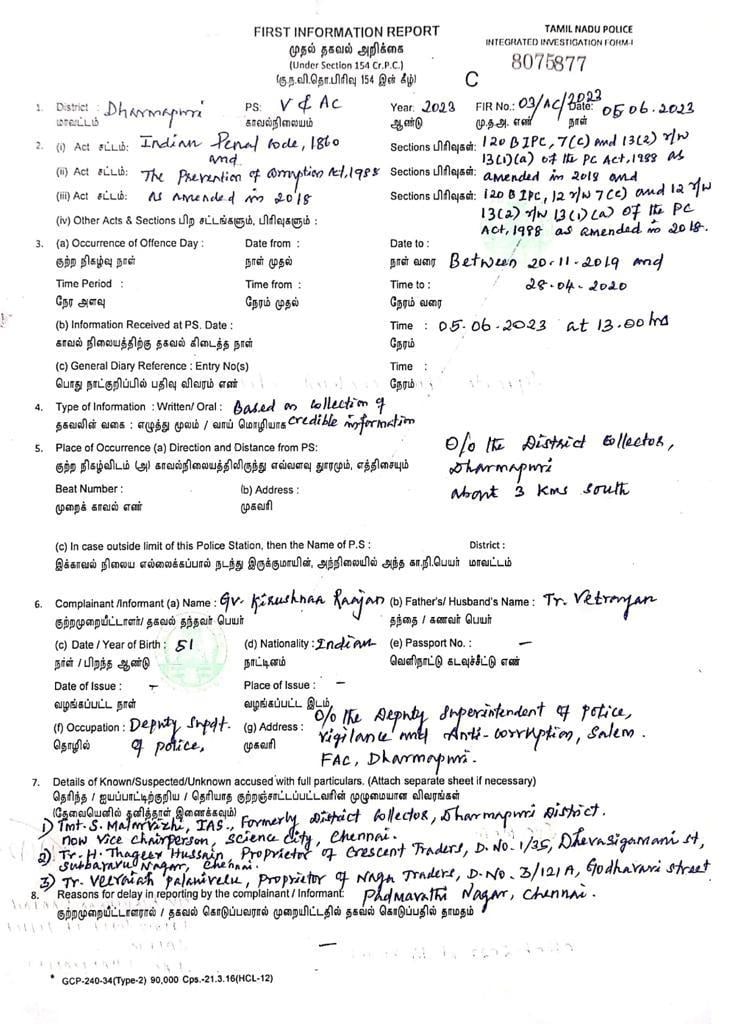 FIRST INFORMATION REPORT
TAMIL NADU POLICE
முதல் தகவல் அறிக்கை
INTEGRATED INVESTIGATION FORM-I
(Under Section 154 Cr.P.C.)
8075877
(கு.ந.வி.தொ.பிரிவு 154 இன் கீழ்)
C
1. District : Dharmapuri PS: V & AC Year: 2023 FIR No.: 03/AC/2023 Date: 05.06.2023
மாவட்டம் காவல்நிலையம் ஆண்டு மு.த.அ. எண் நாள்
2. (i) Act சட்டம்: Indian Penal Code, 1860 Sections பிரிவுகள்: 120 B IPC, 7(c) and 13(2) r/w
and 13(1)(a) of the PC Act, 1988 as
(ii) Act சட்டம்: The Prevention of Corruption Act, 1988 Sections பிரிவுகள்: amended in 2018 and
(iii) Act சட்டம்: as amended in 2018 Sections பிரிவுகள்: 120 B IPC, 12 r/w 7(c) and 12 r/w
13(2) r/w 13(1)(a) of the PC
(iv) Other Acts & Sections பிற சட்டங்களும், பிரிவுகளும் : Act, 1988 as amended in 2018.
3. (a) Occurrence of Offence Day : Date from : Date to :
குற்ற நிகழ்வு நாள் நாள் முதல் நாள் வரை Between 20-11-2019 and
Time Period : Time from : Time to : 28-04-2020
நேர அளவு நேரம் முதல் நேரம் வரை
(b) Information Received at PS. Date : Time : 05-06-2023 at 13.00 hrs
காவல் நிலையத்திற்கு தகவல் கிடைத்த நாள் நேரம்
(c) General Diary Reference : Entry No(s) Time :
பொது நாட்குறிப்பில் பதிவு விவரம் எண் நேரம்
4. Type of Information : Written/ Oral : Based on collection of
தகவலின் வகை : எழுத்து மூலம் / வாய் மொழியாக credible information
5. Place of Occurrence (a) Direction and Distance from PS: O/o the District Collector,
குற்ற நிகழ்விடம் (அ) காவல்நிலையத்திலிருந்து எவ்வளவு தூரமும், எத்திசையும் Dharmapuri
Beat Number : (b) Address : about 3 kms south
முறைக் காவல் எண் முகவரி
(c) In case outside limit of this Police Station, then the Name of P.S : District :
இக்காவல் நிலைய எல்லைக்கப்பால் நடந்து இருக்குமாயின், அந்நிலையில் அந்த கா.நி.பெயர் மாவட்டம்
6. Complainant /Informant (a) Name : Gv. Kirushnaa Raajan (b) Father's/ Husband's Name : Tr. Vetrayan
குற்றமுறையீட்டாளர்/ தகவல் தந்தவர் பெயர் தந்தை / கணவர் பெயர்
(c) Date / Year of Birth : 51 (d) Nationality : Indian (e) Passport No. : –
நாள் / பிறந்த ஆண்டு நாட்டினம் வெளிநாட்டு கடவுச்சீட்டு எண்
Date of Issue : – Place of Issue : –
வழங்கப்பட்ட நாள் வழங்கப்பட்ட இடம்
(f) Occupation : Deputy Supdt. (g) Address : O/o the Deputy Superintendent of police,
தொழில் of police, முகவரி vigilance and Anti-corruption, Salem.
FAC, Dharmapuri.
7. Details of Known/Suspected/Unknown accused with full particulars. (Attach separate sheet if necessary)
தெரிந்த / ஐயப்பாட்டிற்குரிய / தெரியாத குற்றஞ்சாட்டப்பட்டவரின் முழுமையான விவரங்கள்
(தேவையெனில் தனித்தாள் இணைக்கவும்)
1) Tmt. S. Malarvizhi, IAS., Formerly District Collector, Dharmapuri District.
now vice chairperson, science city, Chennai.
2) Tr. H. Thageer Hussain Proprietor of Crescent Traders, D.No. 1/35, Dhevasigamani st,
Subbarayu Nagar, Chennai.
3) Tr. Veeraiah Palanivelu, Proprietor of Naga Traders, D.No. 3/121A, Godhavari street
8. Reasons for delay in reporting by the complainant / Informant: Padmavathi Nagar, Chennai.
குற்றமுறையீட்டாளரால் / தகவல் கொடுப்பவரால் முறையிட்டதில் தகவல் கொடுப்பதில் தாமதம்
–
* GCP-240-34(Type-2) 90,000 Cps.-21.3.16(HCL-12)